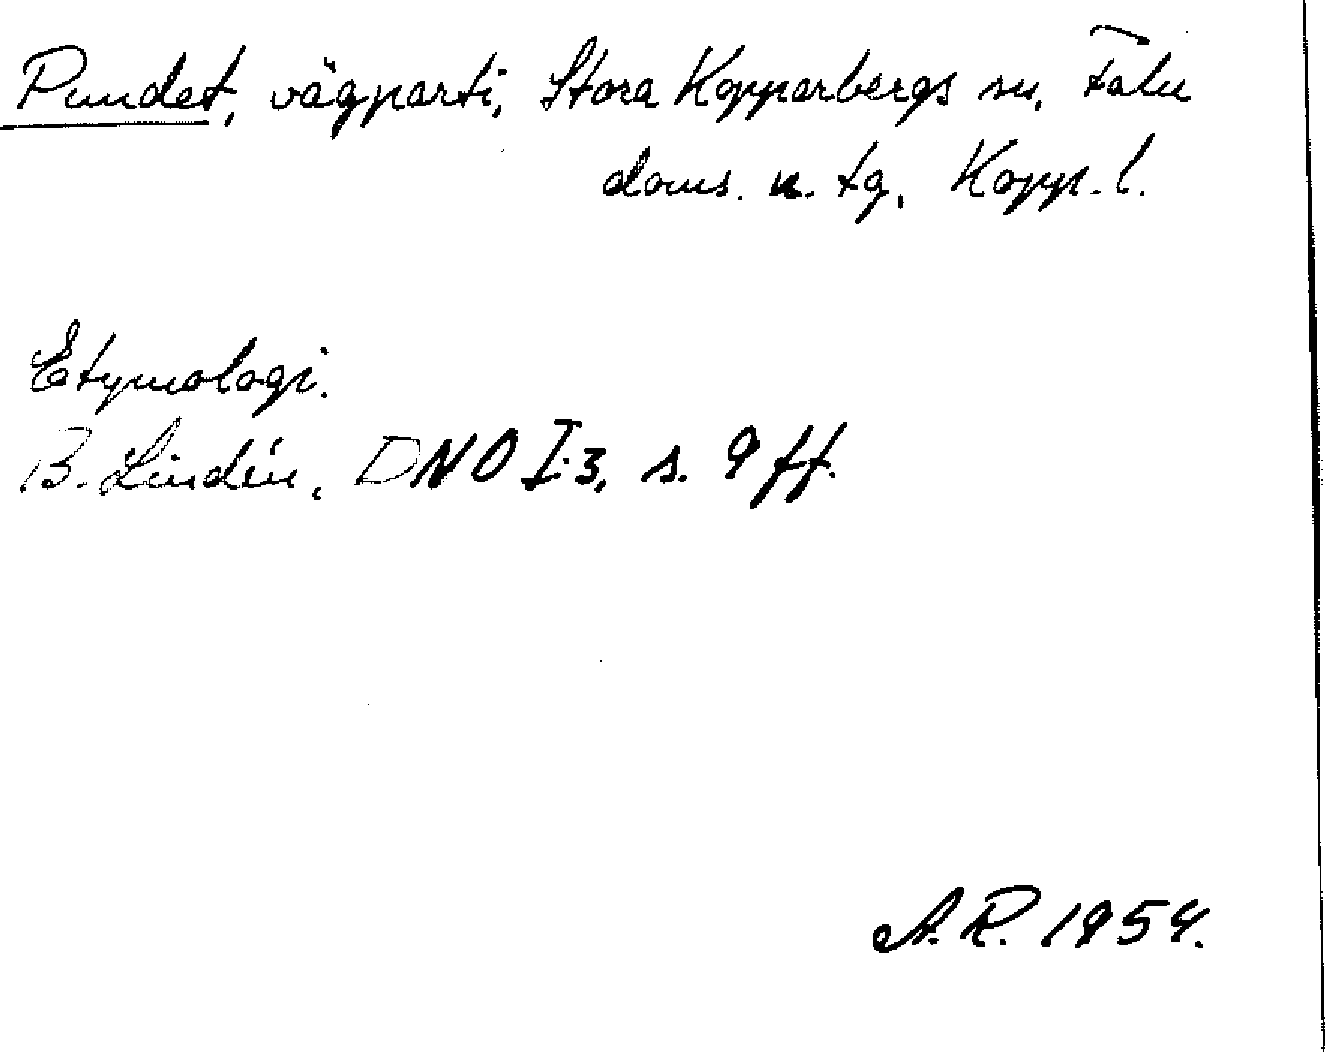 Pundet, vägparti, Stora Kopparbergs sn, Falu
doms. n. tg, Kopp. l.
Etymologi.
B. Lindén, DNO I:3, s. 9 ff.
A.R. 1954.